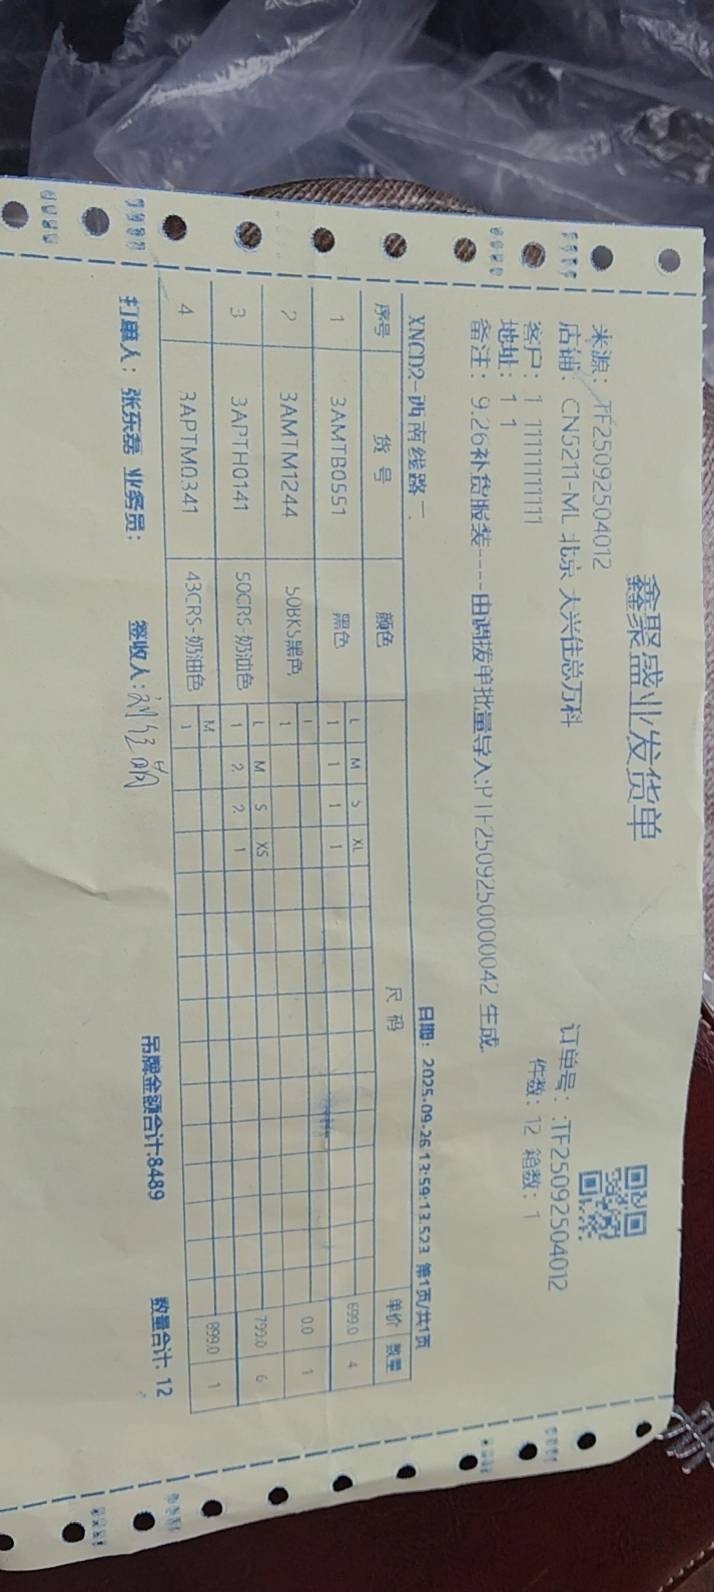 鑫聚盛业发货单
来源：TF25092504012
店铺：CN5211-ML 北京 大兴住总万科 订单号：.TF25092504012
客户：1 11111111111 件数：12 箱数：1
地址：1 1
备注：9.26补货服装----由调拨单批量导入:PTF2509250000042 生成.
XNCD2-西南线路二 日期：2025-09-26 13:59:13.523 第1页/共1页
序号 货号 颜色 尺码 单价 数量
L M S XL
1 3AMTB0551 黑色 1 1 1 1 699.0 4
2 3AMTM1244 50BKS黑色 1 0.0 1
L M S XS
3 3APTH0141 50CRS-奶油色 1 2 2 1 799.0 6
M
4 3APTM0341 43CRS-奶油色 1 899.0 1
打单人：张东磊 业务员： 签收人: 吊牌金额合计:8489 数量合计: 12